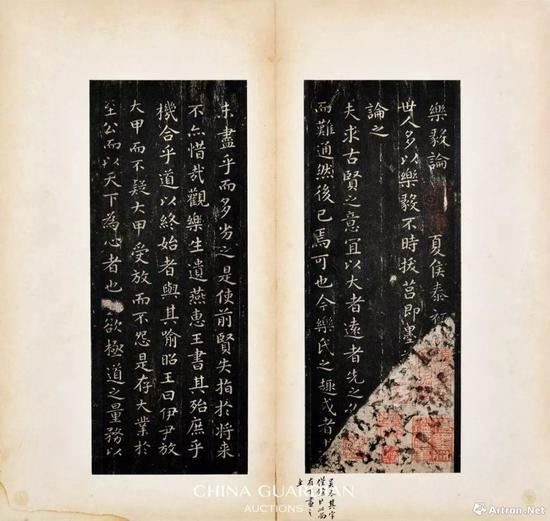 樂毅論 夏侯泰
世人多以樂毅不時拔莒即墨
論之
夫求古賢之意宜以大者遠者先之
而難通然後已焉可也今樂氏之趣或者
未盡乎而多劣之是使前賢失指於將來
不亦惜哉觀樂生遺燕惠王書其殆庶乎
機合乎道以終始者與其喻昭王曰伊尹放
大甲而不疑大甲受放而不怨是存大業於
至公而以天下為心者也 欲極道之量務以
CHINA GUARDIAN
AUCTIONS
Artron.Net